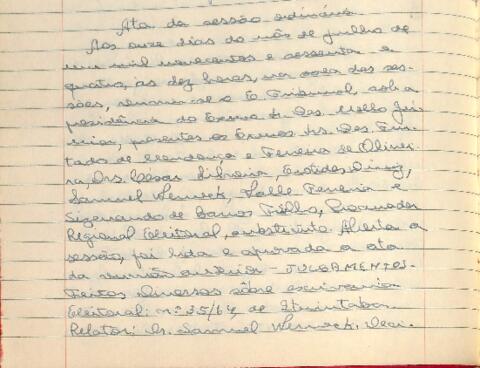 Ata da sessão ordinária
Aos onze dias do mês de julho de
um mil novecentos e sessenta e
quatro, às dez horas, na sala das ses-
sões, reuniu-se o E. Tribunal, sob a
presidência do Exmo. Sr. Des. Mello Jú-
nior, presentes os Exmos. Srs. Des. Fur-
tado de Mendonça e Ferreira de Olivei-
ra, Drs. Cesar Silveira, Diniz,
Samuel Werneck, Valle Ferreira e
Sigenando de Barros Filho, Procurador
Regional Eleitoral, substituto. Aberta a
sessão, foi lida e aprovada a ata
da reunião anterior - JULGAMENTOS.
Feitos Diversos sôbre escrivania
Eleitoral: nº 35/64, de Ituiutaba.
Relator: Dr. Samuel Werneck. Deci-